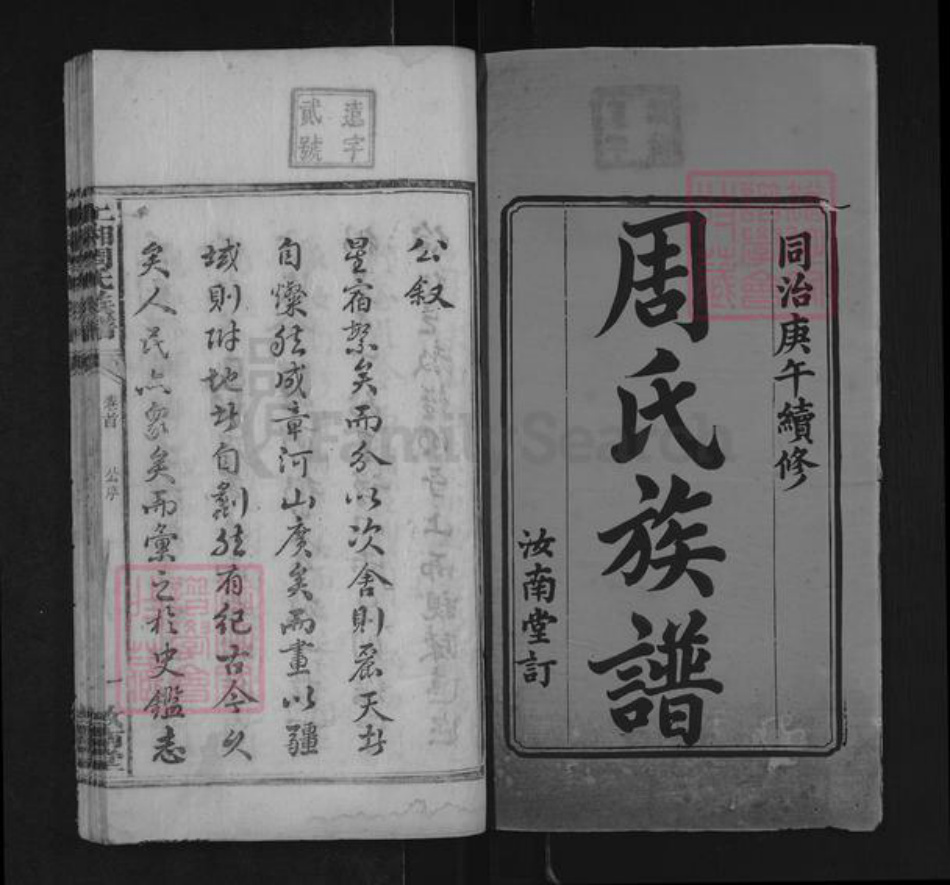 同治庚午續修
周氏族譜
汝南堂訂
遠字
貳號
公叙
星宿繁矣而分以次舍則麗天者
自燦然成章河山廣矣而畫以疆
域則附地者自劃然有紀古今久
矣人民亦眾矣而彙之於史鑑志
上湘周氏族譜
卷首
公序
一
FamilySearch